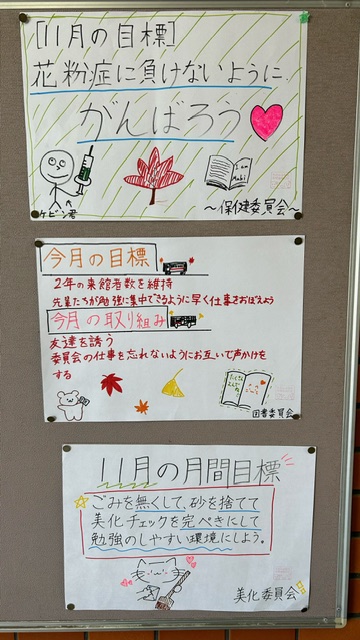 [11月の目標]
花粉症に負けないように
がんばろう
I am
ケビン君
〜保健委員会〜
今月の目標
2年の来館者数を維持
先輩たちが勉強に集中できるように早く仕事をおぼえよう
今月の取り組み
友達を誘う
委員会の仕事を忘れないようにお互いで声かけを
する
図書委員会
11月の月間目標
ごみを無くして、砂を捨てて
美化チェックを完ぺきにして
勉強のしやすい環境にしよう。
美化委員会